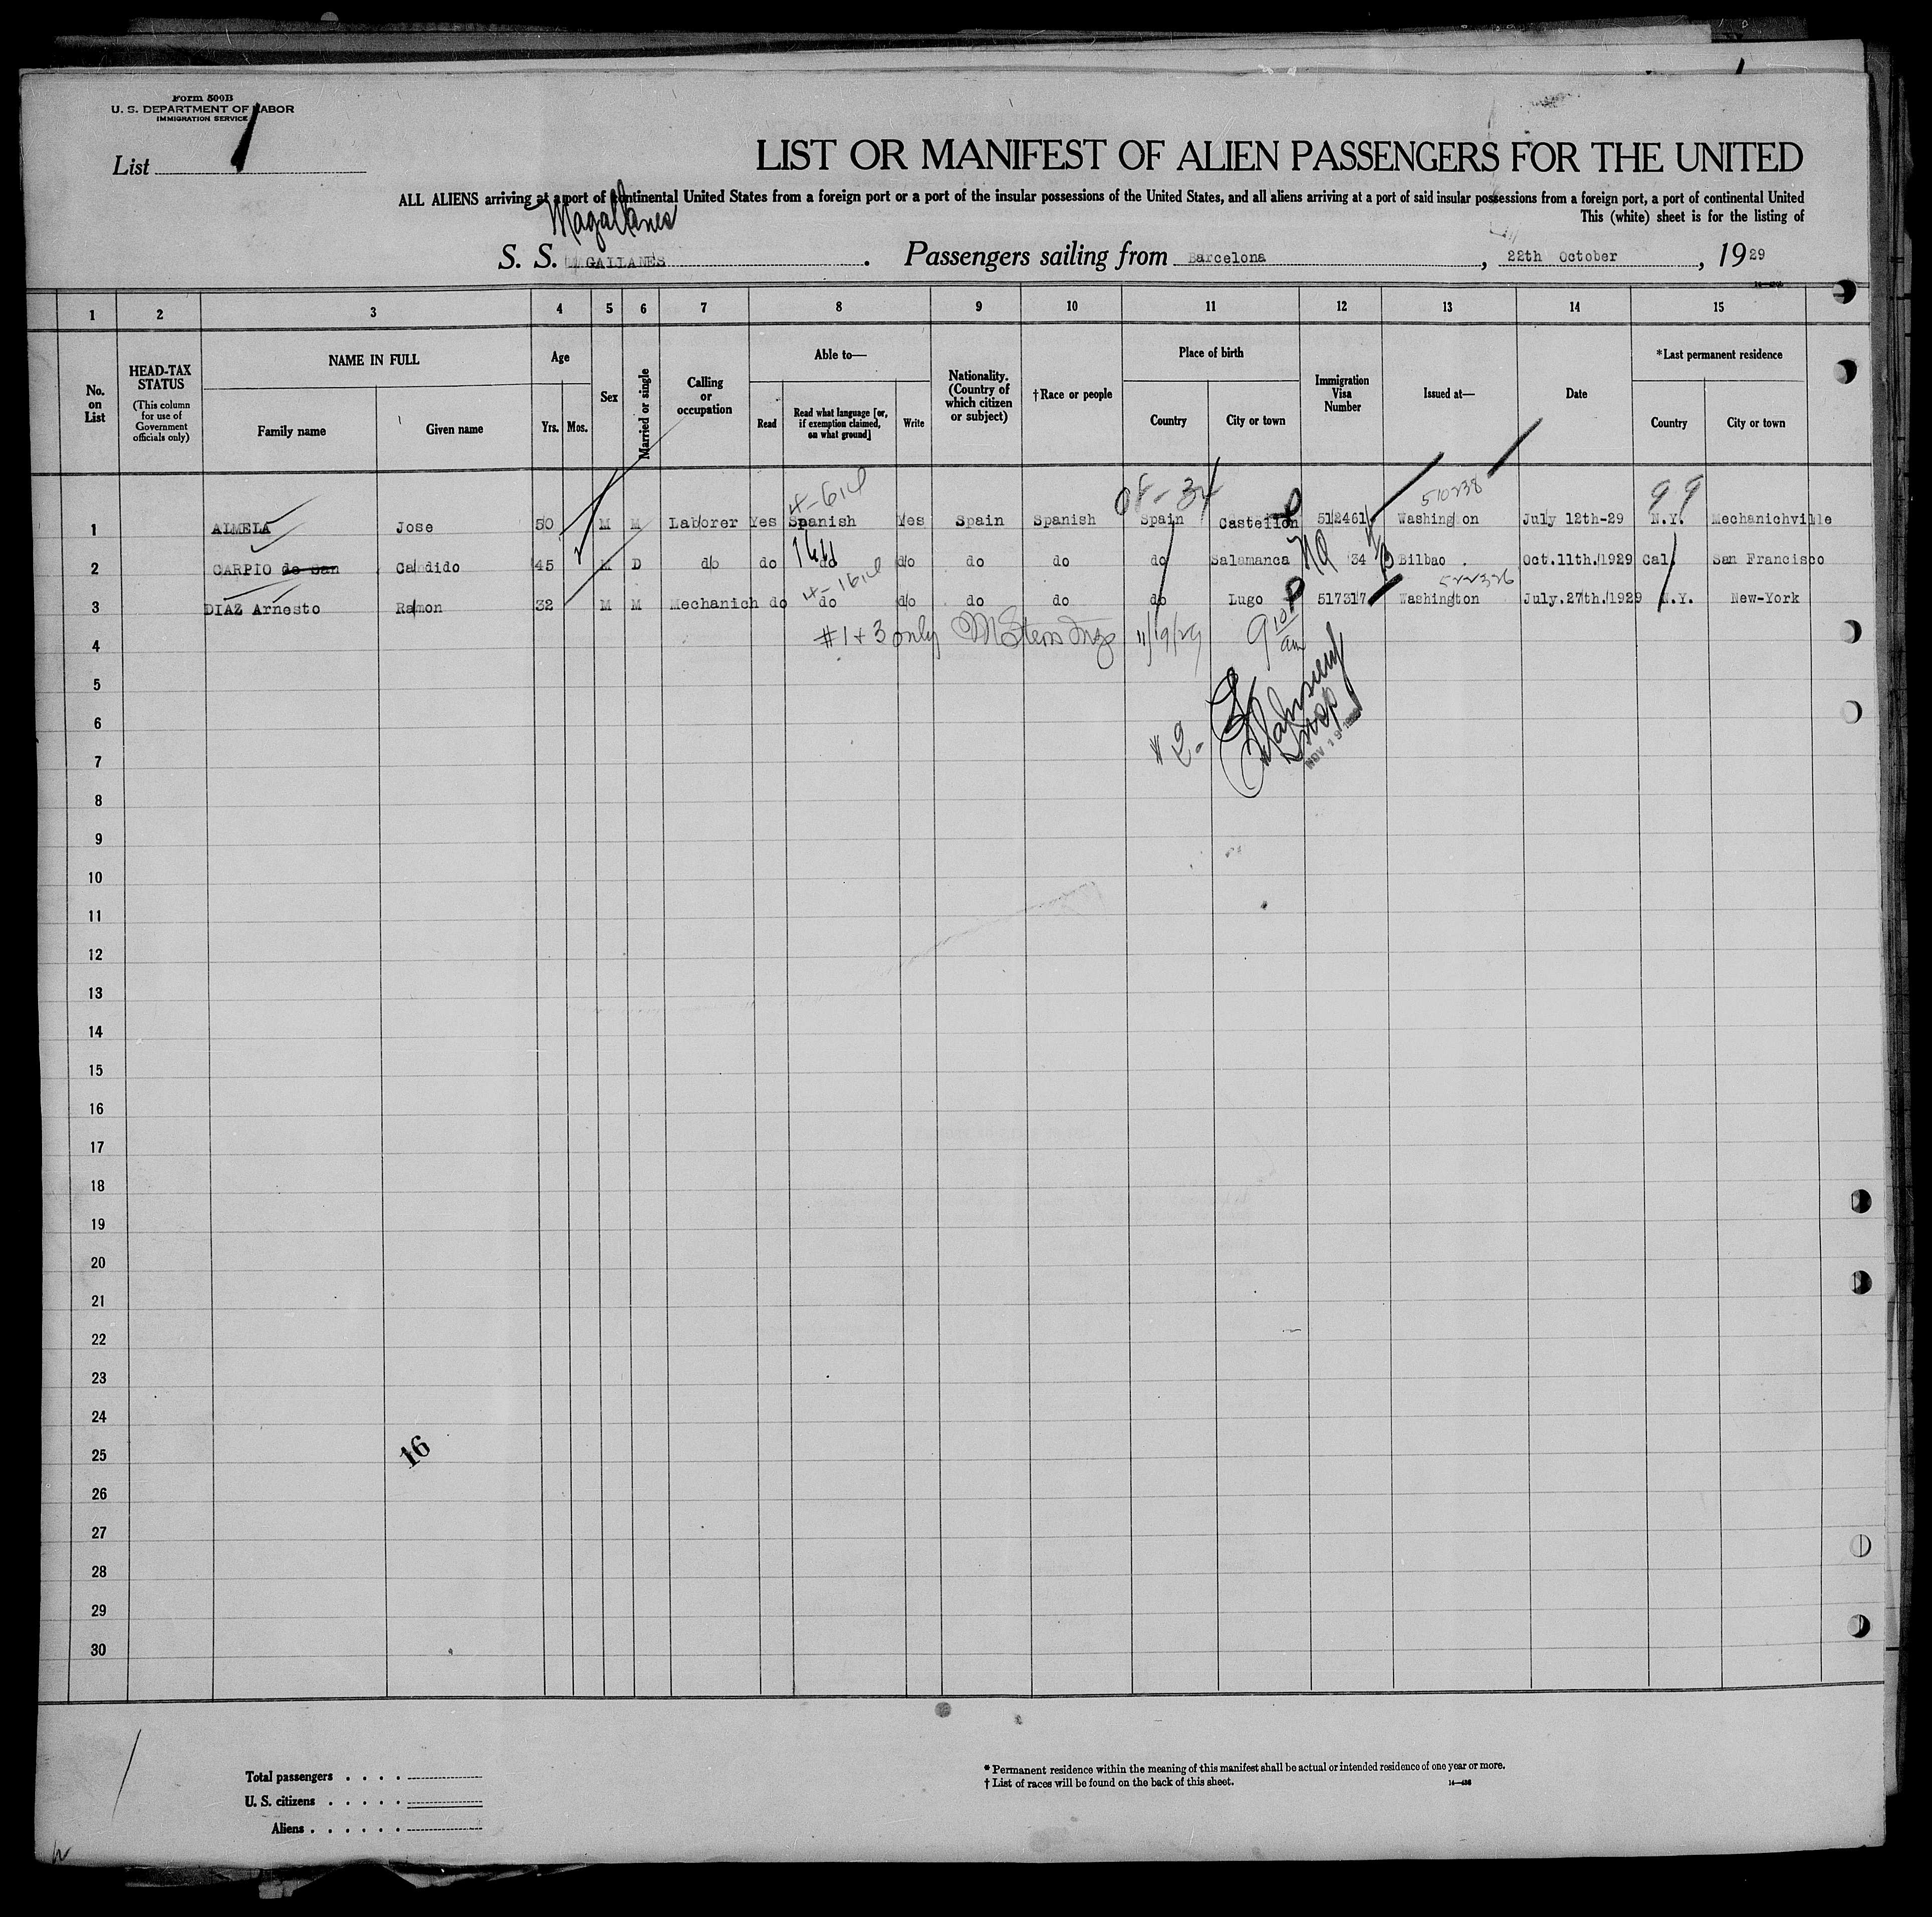 Form 500B
U. S. DEPARTMENT OF LABOR
IMMIGRATION SERVICE
List 1
LIST OR MANIFEST OF ALIEN PASSENGERS FOR THE UNITED
ALL ALIENS arriving at a port of continental United States from a foreign port or a port of the insular possessions of the United States, and all aliens arriving at a port of said insular possessions from a foreign port, a port of continental United
This (white) sheet is for the listing of
Magallanes
S. S. MAGALLANES. Passengers sailing from Barcelona, 22th October, 1929
1 2 3 4 5 6 7 8 9 10 11 12 13 14 15
No. on List
HEAD-TAX STATUS
(This column for use of Government officials only)
NAME IN FULL
Family name
Given name
Age
Yrs. Mos.
Sex
Married or single
Calling or occupation
Able to—
Read
Read what language [or, if exemption claimed, on what ground]
Write
Nationality. (Country of which citizen or subject)
†Race or people
Place of birth
Country
City or town
Immigration Visa Number
Issued at—
Date
*Last permanent residence
Country
City or town
510238
99
1 ALMELA Jose 50 M M Laborer Yes Spanish Yes Spain Spanish Spain Castellon 512461 Washington July 12th-29 N.Y. Mechanichville
2 CARPIO de San Candido 45 M D do do do do do do do Salamanca 34 Bilbao . Oct.11th./1929 Cal. San Francisco
522326
3 DIAZ Arnesto Ramon 32 M M Mechanich do do do do do do Lugo 517317 Washington July.27th./1929 N.Y. New-York
#1+3 only 11/19/29 9 10 am
4
5
6
# 2-
7
NOV 19
8
9
10
11
12
13
14
15
16
17
18
19
20
21
22
23
24
25
16
26
27
28
29
30
Total passengers . . . .
U. S. citizens . . . . .
Aliens . . . . . .
* Permanent residence within the meaning of this manifest shall be actual or intended residence of one year or more.
† List of races will be found on the back of this sheet.
14—436